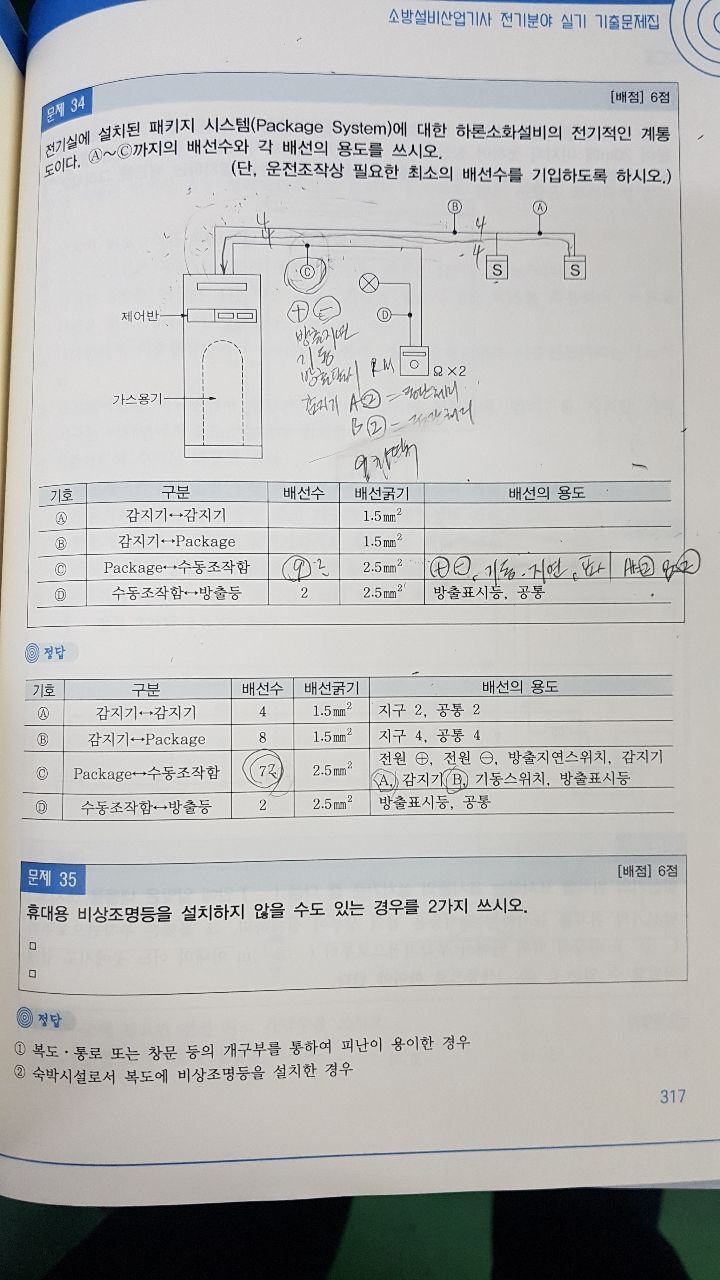 소방설비산업기사 전기분야 실기 기출문제집
문제 34
[배점] 6점
전기실에 설치된 패키지 시스템(Package System)에 대한 하론소화설비의 전기적인 계통
도이다. Ⓐ～Ⓒ까지의 배선수와 각 배선의 용도를 쓰시오.
(단, 운전조작상 필요한 최소의 배선수를 기입하도록 하시오.)
Ⓑ Ⓐ
4 4
4 4
Ⓒ S S
제어반
⊕ ⊖
Ⓓ
방출지연
기동
RM Ω×2
가스용기
감지기 A②=
B②=
기호 구분 배선수 배선굵기 배선의 용도
Ⓐ 감지기↔감지기 1.5㎟
Ⓑ 감지기↔Package 1.5㎟
Ⓒ Package↔수동조작함 9 2.5㎟ ⊕ ⊖, 기동, 지연, A② B②
Ⓓ 수동조작함↔방출등 2 2.5㎟ 방출표시등, 공통
정답
기호 구분 배선수 배선굵기 배선의 용도
Ⓐ 감지기↔감지기 4 1.5㎟ 지구 2, 공통 2
Ⓑ 감지기↔Package 8 1.5㎟ 지구 4, 공통 4
Ⓒ Package↔수동조작함 7 2.5㎟ 전원 ⊕, 전원 ⊖, 방출지연스위치, 감지기
A, 감지기 B, 기동스위치, 방출표시등
Ⓓ 수동조작함↔방출등 2 2.5㎟ 방출표시등, 공통
문제 35
[배점] 6점
휴대용 비상조명등을 설치하지 않을 수도 있는 경우를 2가지 쓰시오.
□
□
정답
① 복도·통로 또는 창문 등의 개구부를 통하여 피난이 용이한 경우
② 숙박시설로서 복도에 비상조명등을 설치한 경우
317